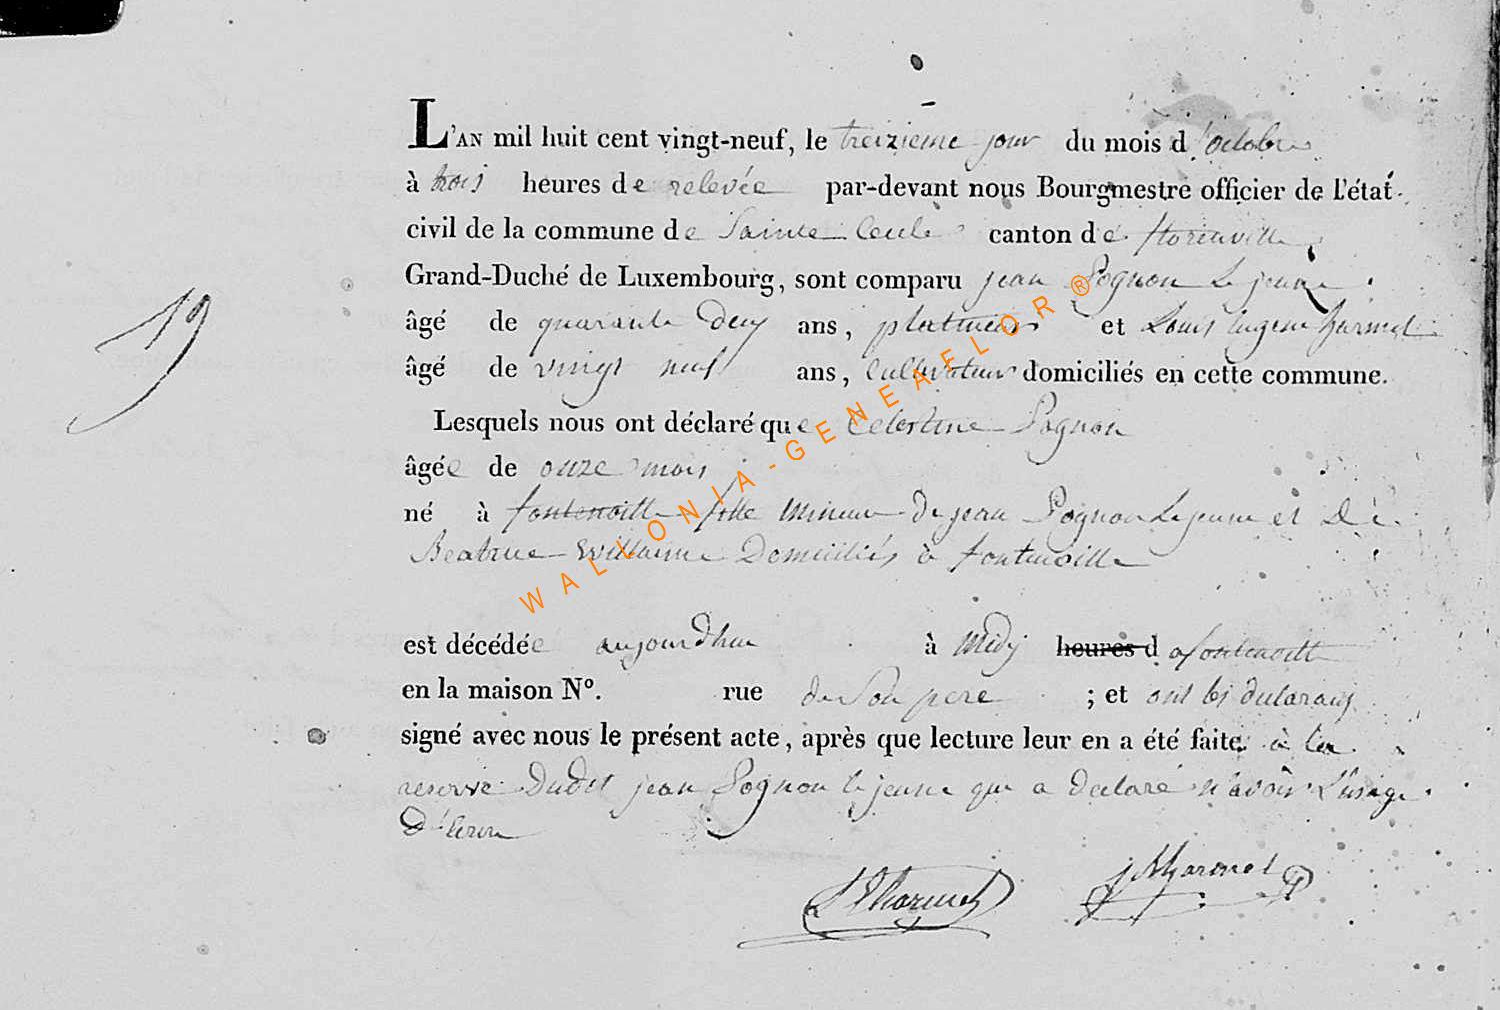 L'AN mil huit cent vingt-neuf, le treizieme jour du mois d'octobre
à trois heures de relevée par-devant nous Bourgmestre officier de l'état
civil de la commune de Sainte Cecile canton de florenville
Grand-Duché de Luxembourg, sont comparu jean Pognon Le jeune
âgé de quarante deux ans, et Louis Eugene harmel
âgé de vingt neuf ans, cultivateur domiciliés en cette commune.
Lesquels nous ont déclaré que Celestine Pognon
âgée de onze mois
né à fontenoille fille mineure de jean Pognon Le jeune et De
Beatrice Willaime Domiciliés à fontenoille
est décédée aujourdhui à Midy heures d a fontenoille
en la maison Nº. rue de Son pere ; et ont les declarans
signé avec nous le présent acte, après que lecture leur en a été faite à la
reserve Dudit jean Pognon le jeune qui a declaré n'avoir L'usage
D'Ecrire
19
LEharmel
JHarmel
WALLONIA-GENEAFLOR®